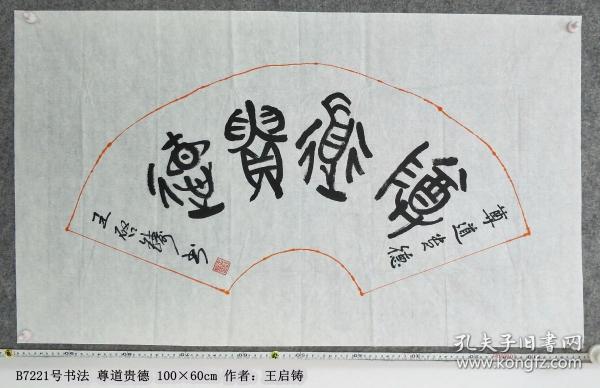 尊道貴德
尊道贵德
王启铸书
孔夫子旧书网
kongfz.com
B7221号书法 尊道贵德 100×60cm 作者：王启铸